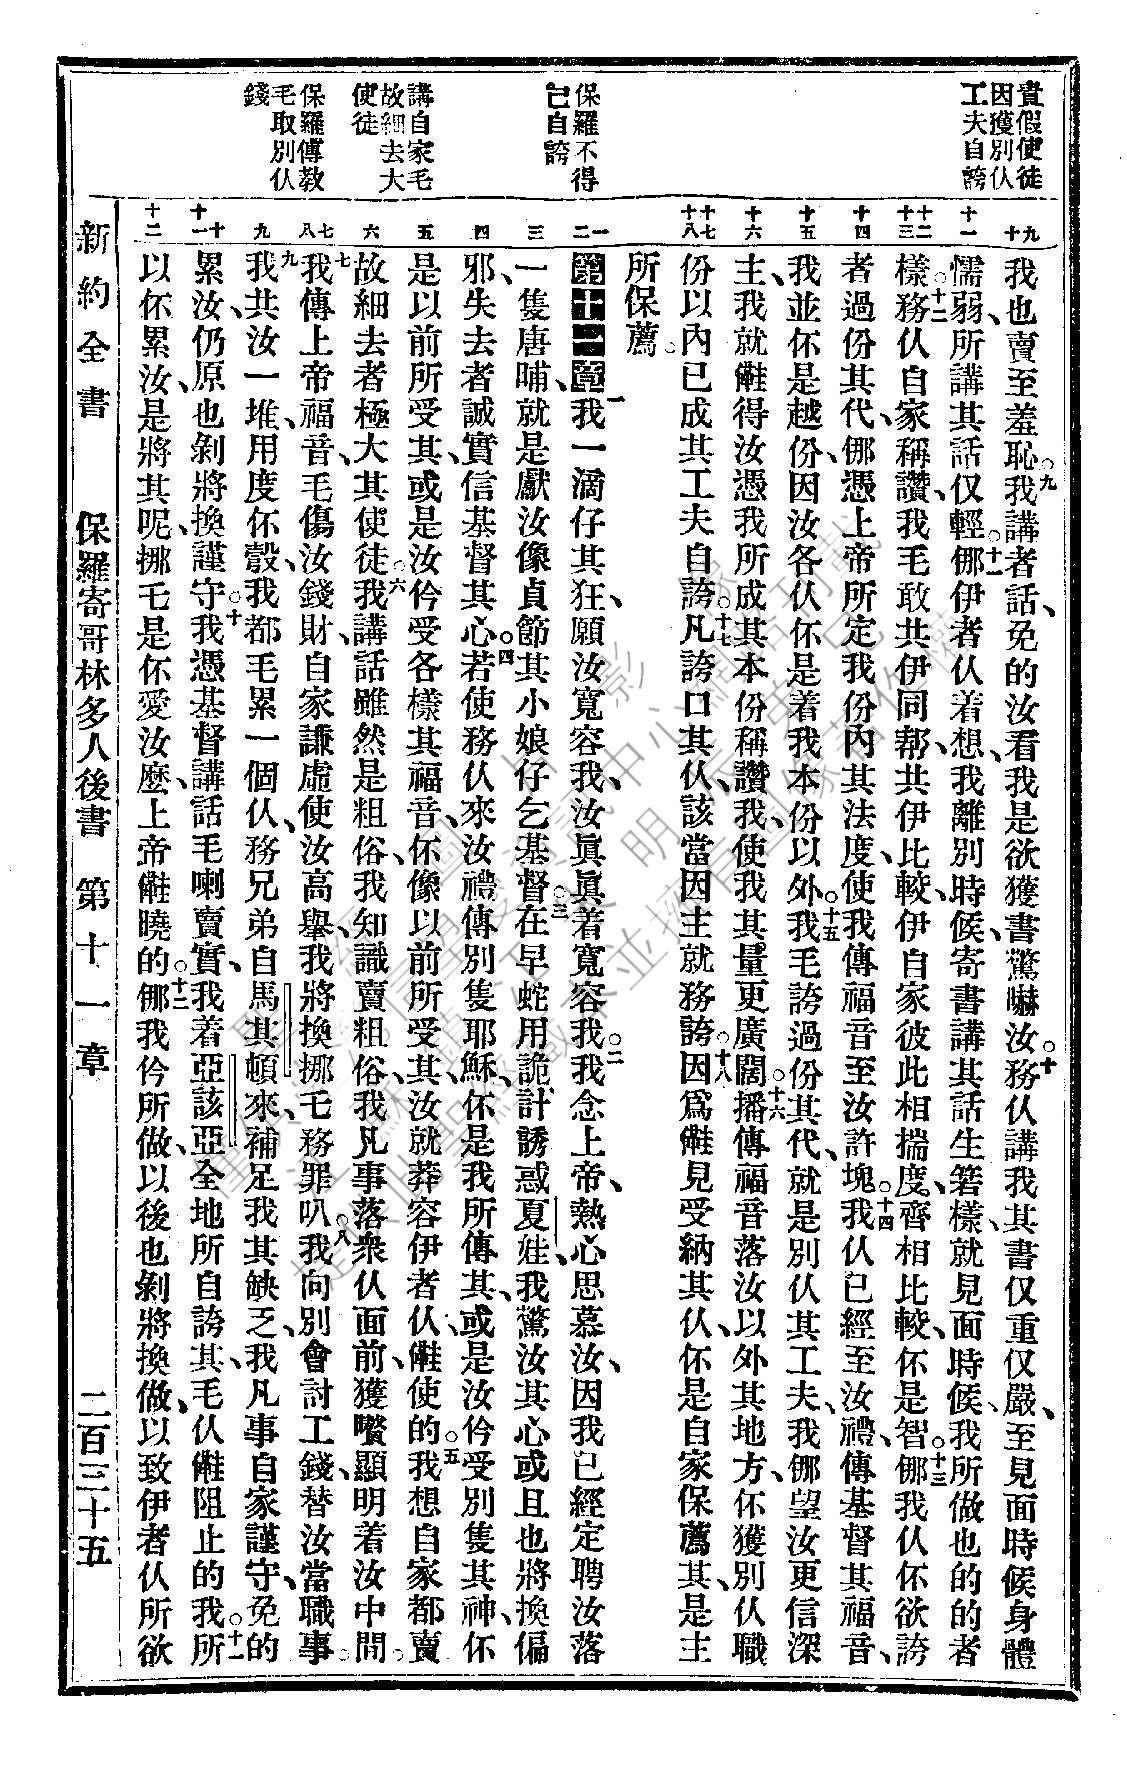 責假使徒
因獲別仈
工夫自誇
保羅不得
已自誇
講自家毛
故細去大
使徒
保羅傳教
毛取別仈
錢
九 十
十一
十二 十三
十四
十五
十六
十七 十八
一 二
三
四
五
六
七 八
九
十 十一
十二
我也賣至羞恥。九我講者話、免的汝看我是欲獲書驚嚇汝。十務仈講我其書仅重仅嚴、至見面時候身體
懦弱、所講其話仅輕。十一㑚伊者仈着想、我離別時候、寄書講其話生箬樣、就見面時候、我所做也的的者
樣。十二務仈自家稱讚、我毛敢共伊同帮、共伊比較、伊自家彼此相揣度、齊相比較、伓是智。十三㑚我仈伓欲誇
者過份其代、㑚憑上帝所定我份內其法度、使我傳福音至汝許塊。十四我仈已經至汝禮、傳基督其福音、
我並伓是越份、因汝各仈伓是着我本份以外。十五我毛誇過份其代、就是別仈其工夫、我㑚望汝更信深
主、我就㒰得汝憑我所成其本份稱讚我、使我其量更廣闊。十六播傳福音落汝以外其地方、伓獲別仈職
份以內已成其工夫自誇。十七凡誇口其仈、該當因主就務誇。十八因爲㒰見受納其仈、伓是自家保薦其、是主
所保薦。
第十一章一我一滴仔其狂、願汝寬容我、汝眞眞着寬容我。二我念上帝、熱心思慕汝、因我已經定聘汝落
一隻唐晡、就是獻汝像貞節其小娘仔乞基督。三在早蛇用詭計誘惑夏娃、我驚汝其心或且也將換偏
邪、失去者誠實信基督其心。四若使務仈來汝禮傳別隻耶穌、伓是我所傳其、或是汝仱受別隻其神、伓
是以前所受其、或是汝仱受各樣其福音、伓像以前所受其、汝就莽容伊者仈、㒰使的。五我想自家都賣
故細去者極大其使徒。六我講話雖然是粗俗、我知識賣粗俗、我凡事落衆仈面前、獲囋顯明着汝中間。
七我傳上帝福音、毛傷汝錢財、自家謙虛使汝高舉、我將換挪毛務罪叭。八我向別會討工錢、替汝當職事。
九我共汝一堆、用度伓彀、我都毛累一個仈、務兄弟自馬其頓來、補足我其缺乏、我凡事自家謹守、免的
累汝、仍原也剝將換謹守。十我憑基督講話毛喇賣實、我着亞該亞全地所自誇其、毛仈㒰阻止的我。十一我所
以伓累汝、是將其呢、挪乇是伓愛汝麼、上帝㒰曉的。十二㑚我仱所做、以後也剝將換做、以致伊者仈所欲
新約全書 保羅寄哥林多人後書 第十一章 二百三十五